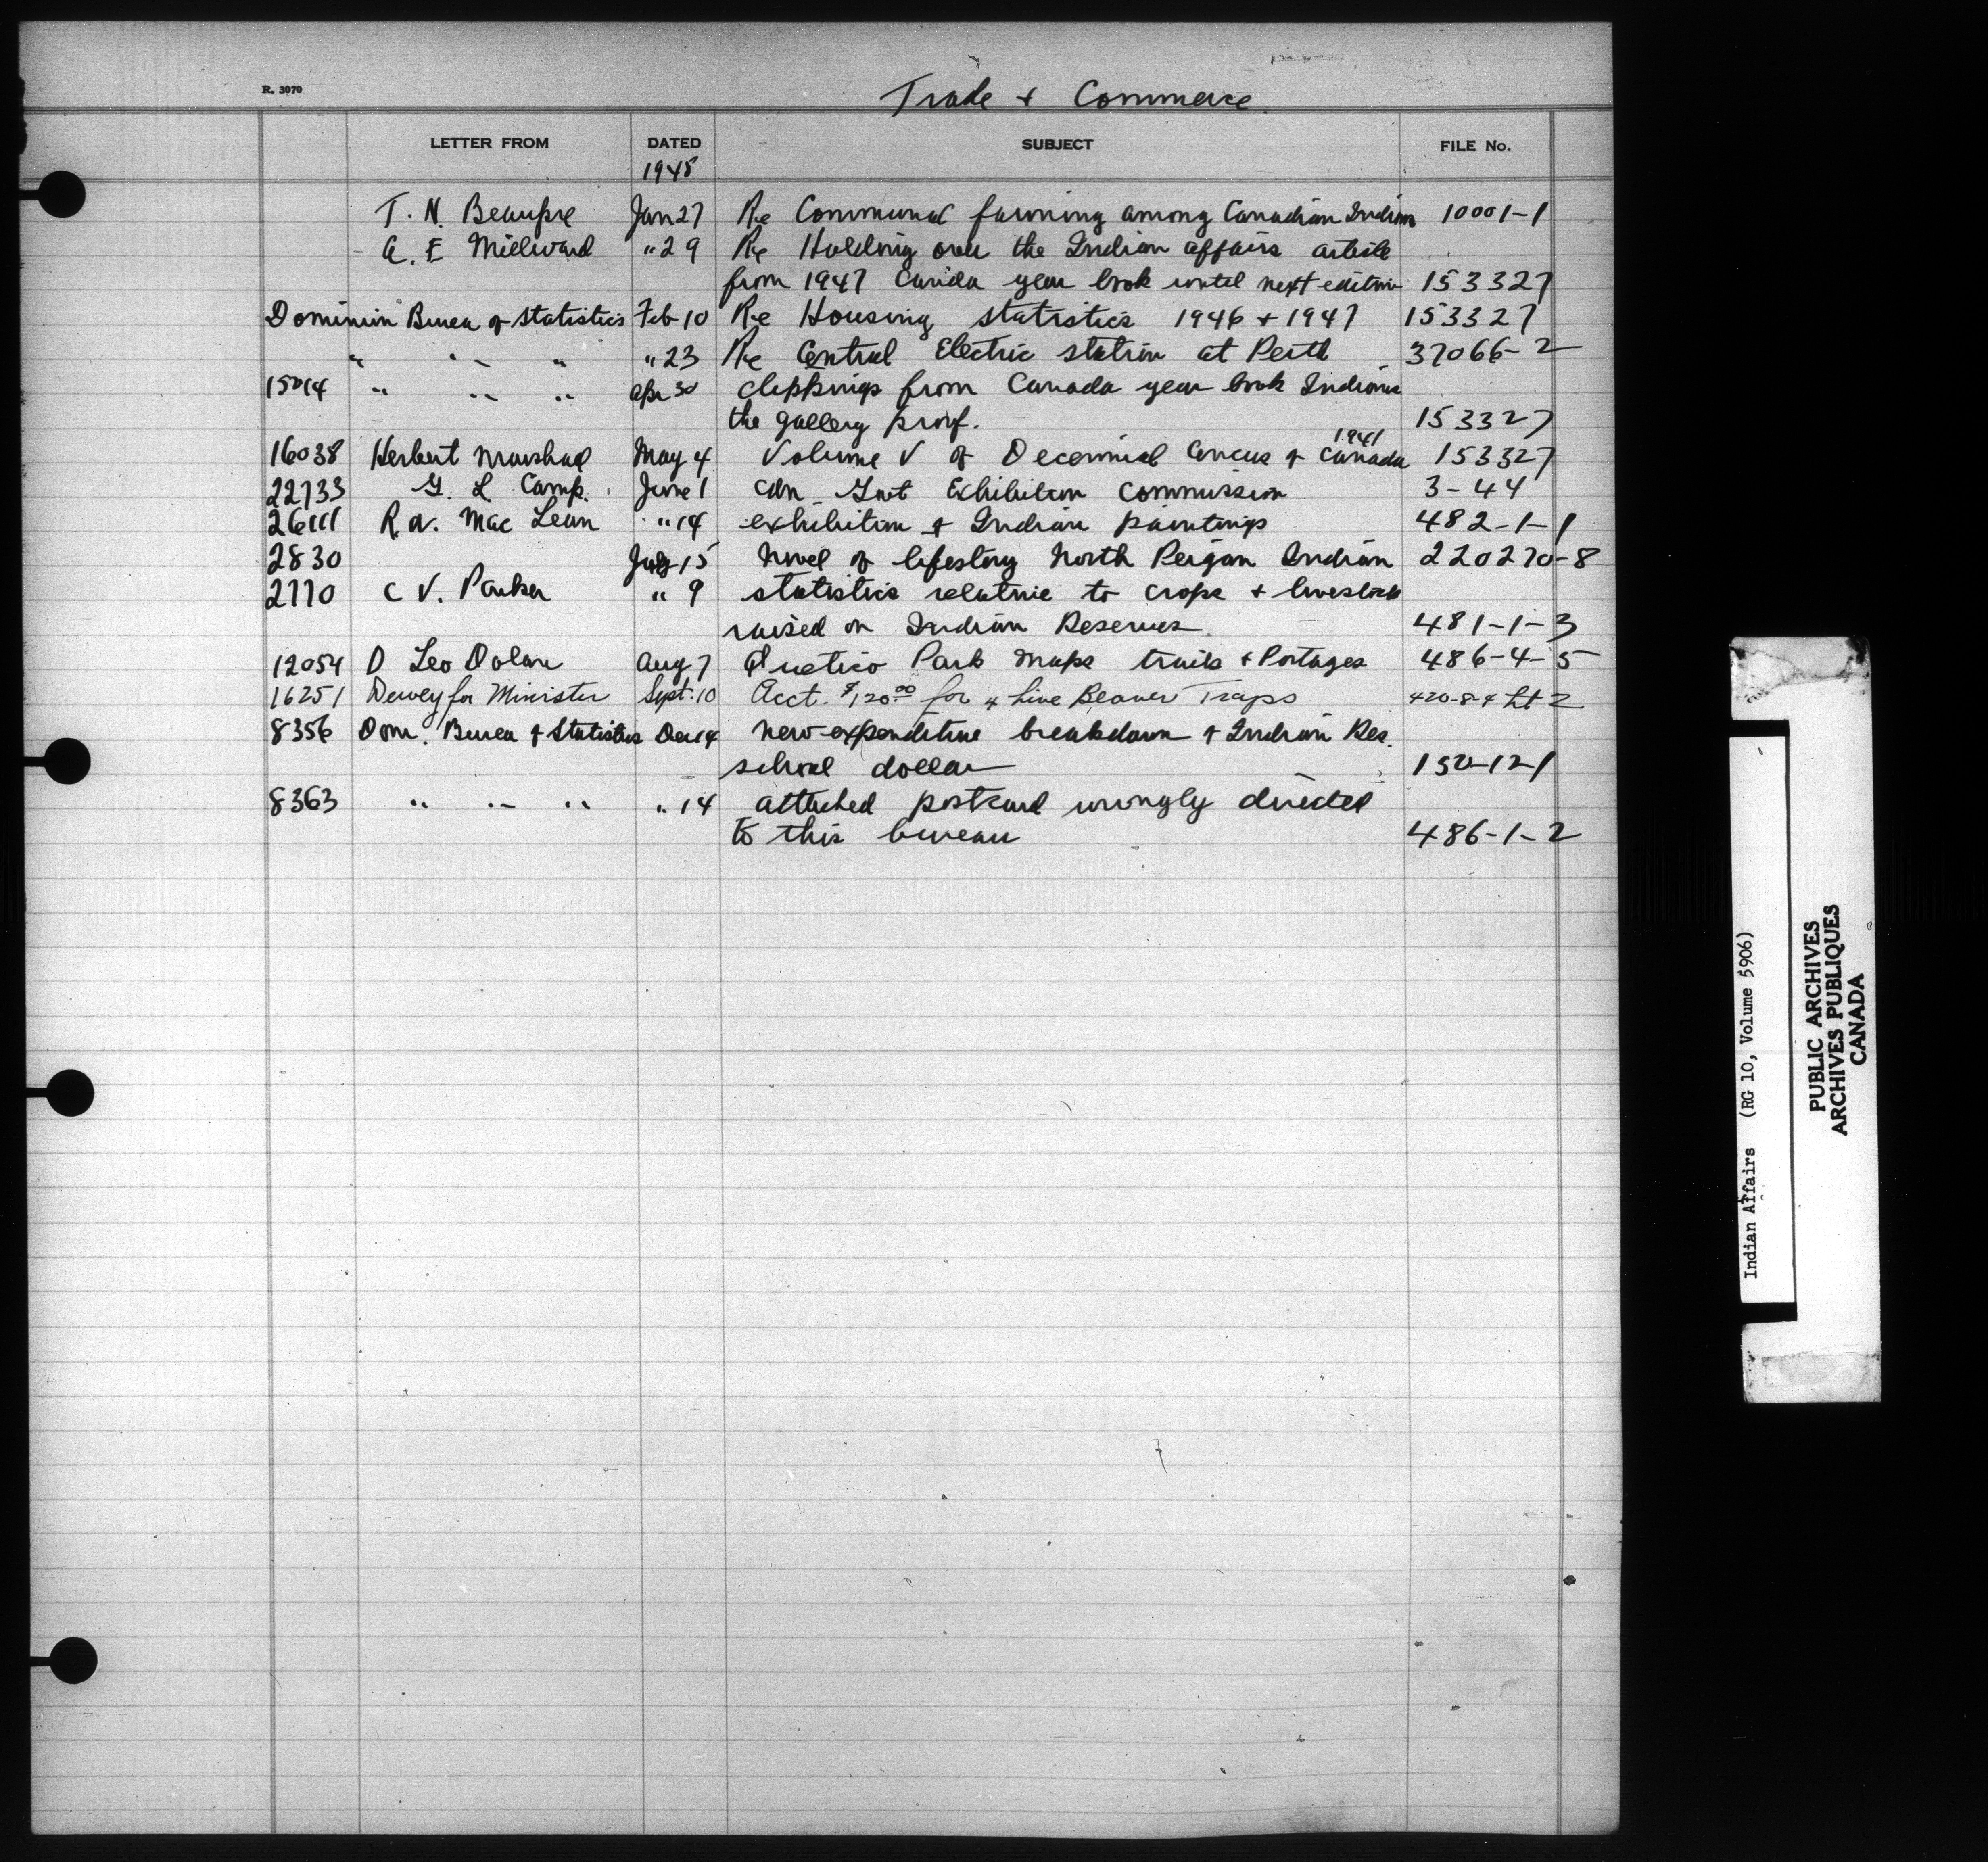 R. 3070
Trade + Commerce
LETTER FROM DATED SUBJECT FILE No.
1948
T. N. Beaupre Jan 27 Re Communal farming among Canadian Indians 10001-1
A. E Millward " 29 Re Holding over the Indian affairs article
from 1947 Canada year book until next edition 153327
Dominion Bureau of Statistics Feb 10 Re Housing statistics 1946 + 1947 153327
" " " " 23 Re Central Electric station at Perth 37066-2
15014 " " " Apr 30 clippings from Canada year book Indians
the gallery proof. 153327
1941
16038 Herbert Marshall May 4 Volume V of Decennial Census of Canada 153327
22733 G. L Camp. June 1 Cdn Govt Exhibition Commission 3-44
26111 R.A. MacLean " 14 exhibition of Indian paintings 482-1-1
2830 July 15 novel of lifestory North Peigan Indian 220270-8
2770 C V. Parker " 9 statistics relative to crops + livestock
raised on Indian Reserves 481-1-3
12054 D Leo Dolan Aug 7 Quetico Park maps trails + Portages 486-4-5
16251 Dewey for Minister Sept. 10 Acct. $120.00 for 4 Live Beaver Traps 420-8-4 2
8356 Dom. Bureau of Statistics Dec 14 new expenditure breakdown of Indian Res.
school dollar 150-12-1
8363 " " " " 14 attached postcard wrongly directed
to this bureau 486-1-2
Indian Affairs (RG 10, Volume 5906)
PUBLIC ARCHIVES
ARCHIVES PUBLIQUES
CANADA